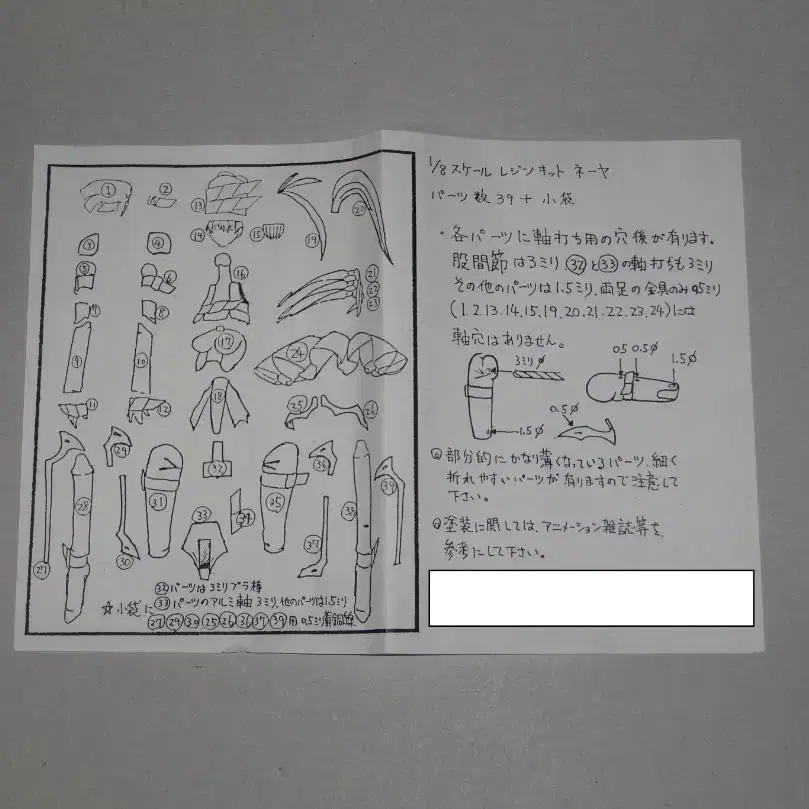 ① ② ⑬ ⑲ ⑳
③ ④ ⑭ ⑮
⑤ ⑥ ⑯ ㉑
㉒
㉓
⑧
⑨ ⑩ ⑰ ㉔
⑪ ⑫ ⑱ ㉕ ㉖
㉘ ㉙ ㉛ ㉜ ㉟ ㊱
㉝ ㉞ ㊳ ㊴
㉗ ㉚ ㊲
㉜パーツは3ミリプラ棒
☆小袋に ㉝パーツのアルミ軸3ミリ、他のパーツは1.5ミリ
㉗㉙㉚㉕㉖㊱㊲㊴用0.5ミリ黄銅線
1/8スケール レジンキット ネーヤ
パーツ数39+小袋
・各パーツに軸打ち用の穴後が有ります。
股間節は3ミリ㉜と㉝の軸打ちも3ミリ
その他のパーツは1.5ミリ、両足の金具のみ0.5ミリ
(1.2.13.14.15.19.20.21.22.23.24)には
軸穴はありません。
3ミリφ
05 0.5φ
1.5φ
0.5φ
1.5φ
部分的にかなり薄くなっているパーツ、細く
折れやすいパーツが有りますので注意して
下さい。
塗装に関しては、アニメーション雑誌等を、
参考にして下さい。